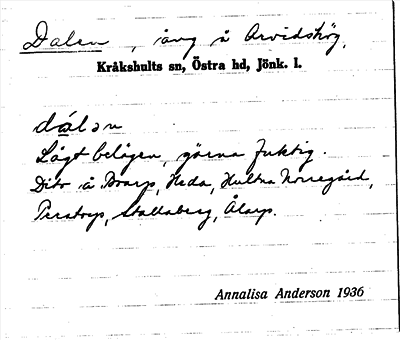 Dalen, äng å Arvidshög,
Kråkshults sn, Östra hd, Jönk. l.
dálən
Lågt belägen, gärna fuktig.
Dito å Boarp, Heda, Hultna Norregård,
Perstorp, Stallaberg, Ålarp.
Annalisa Anderson 1936